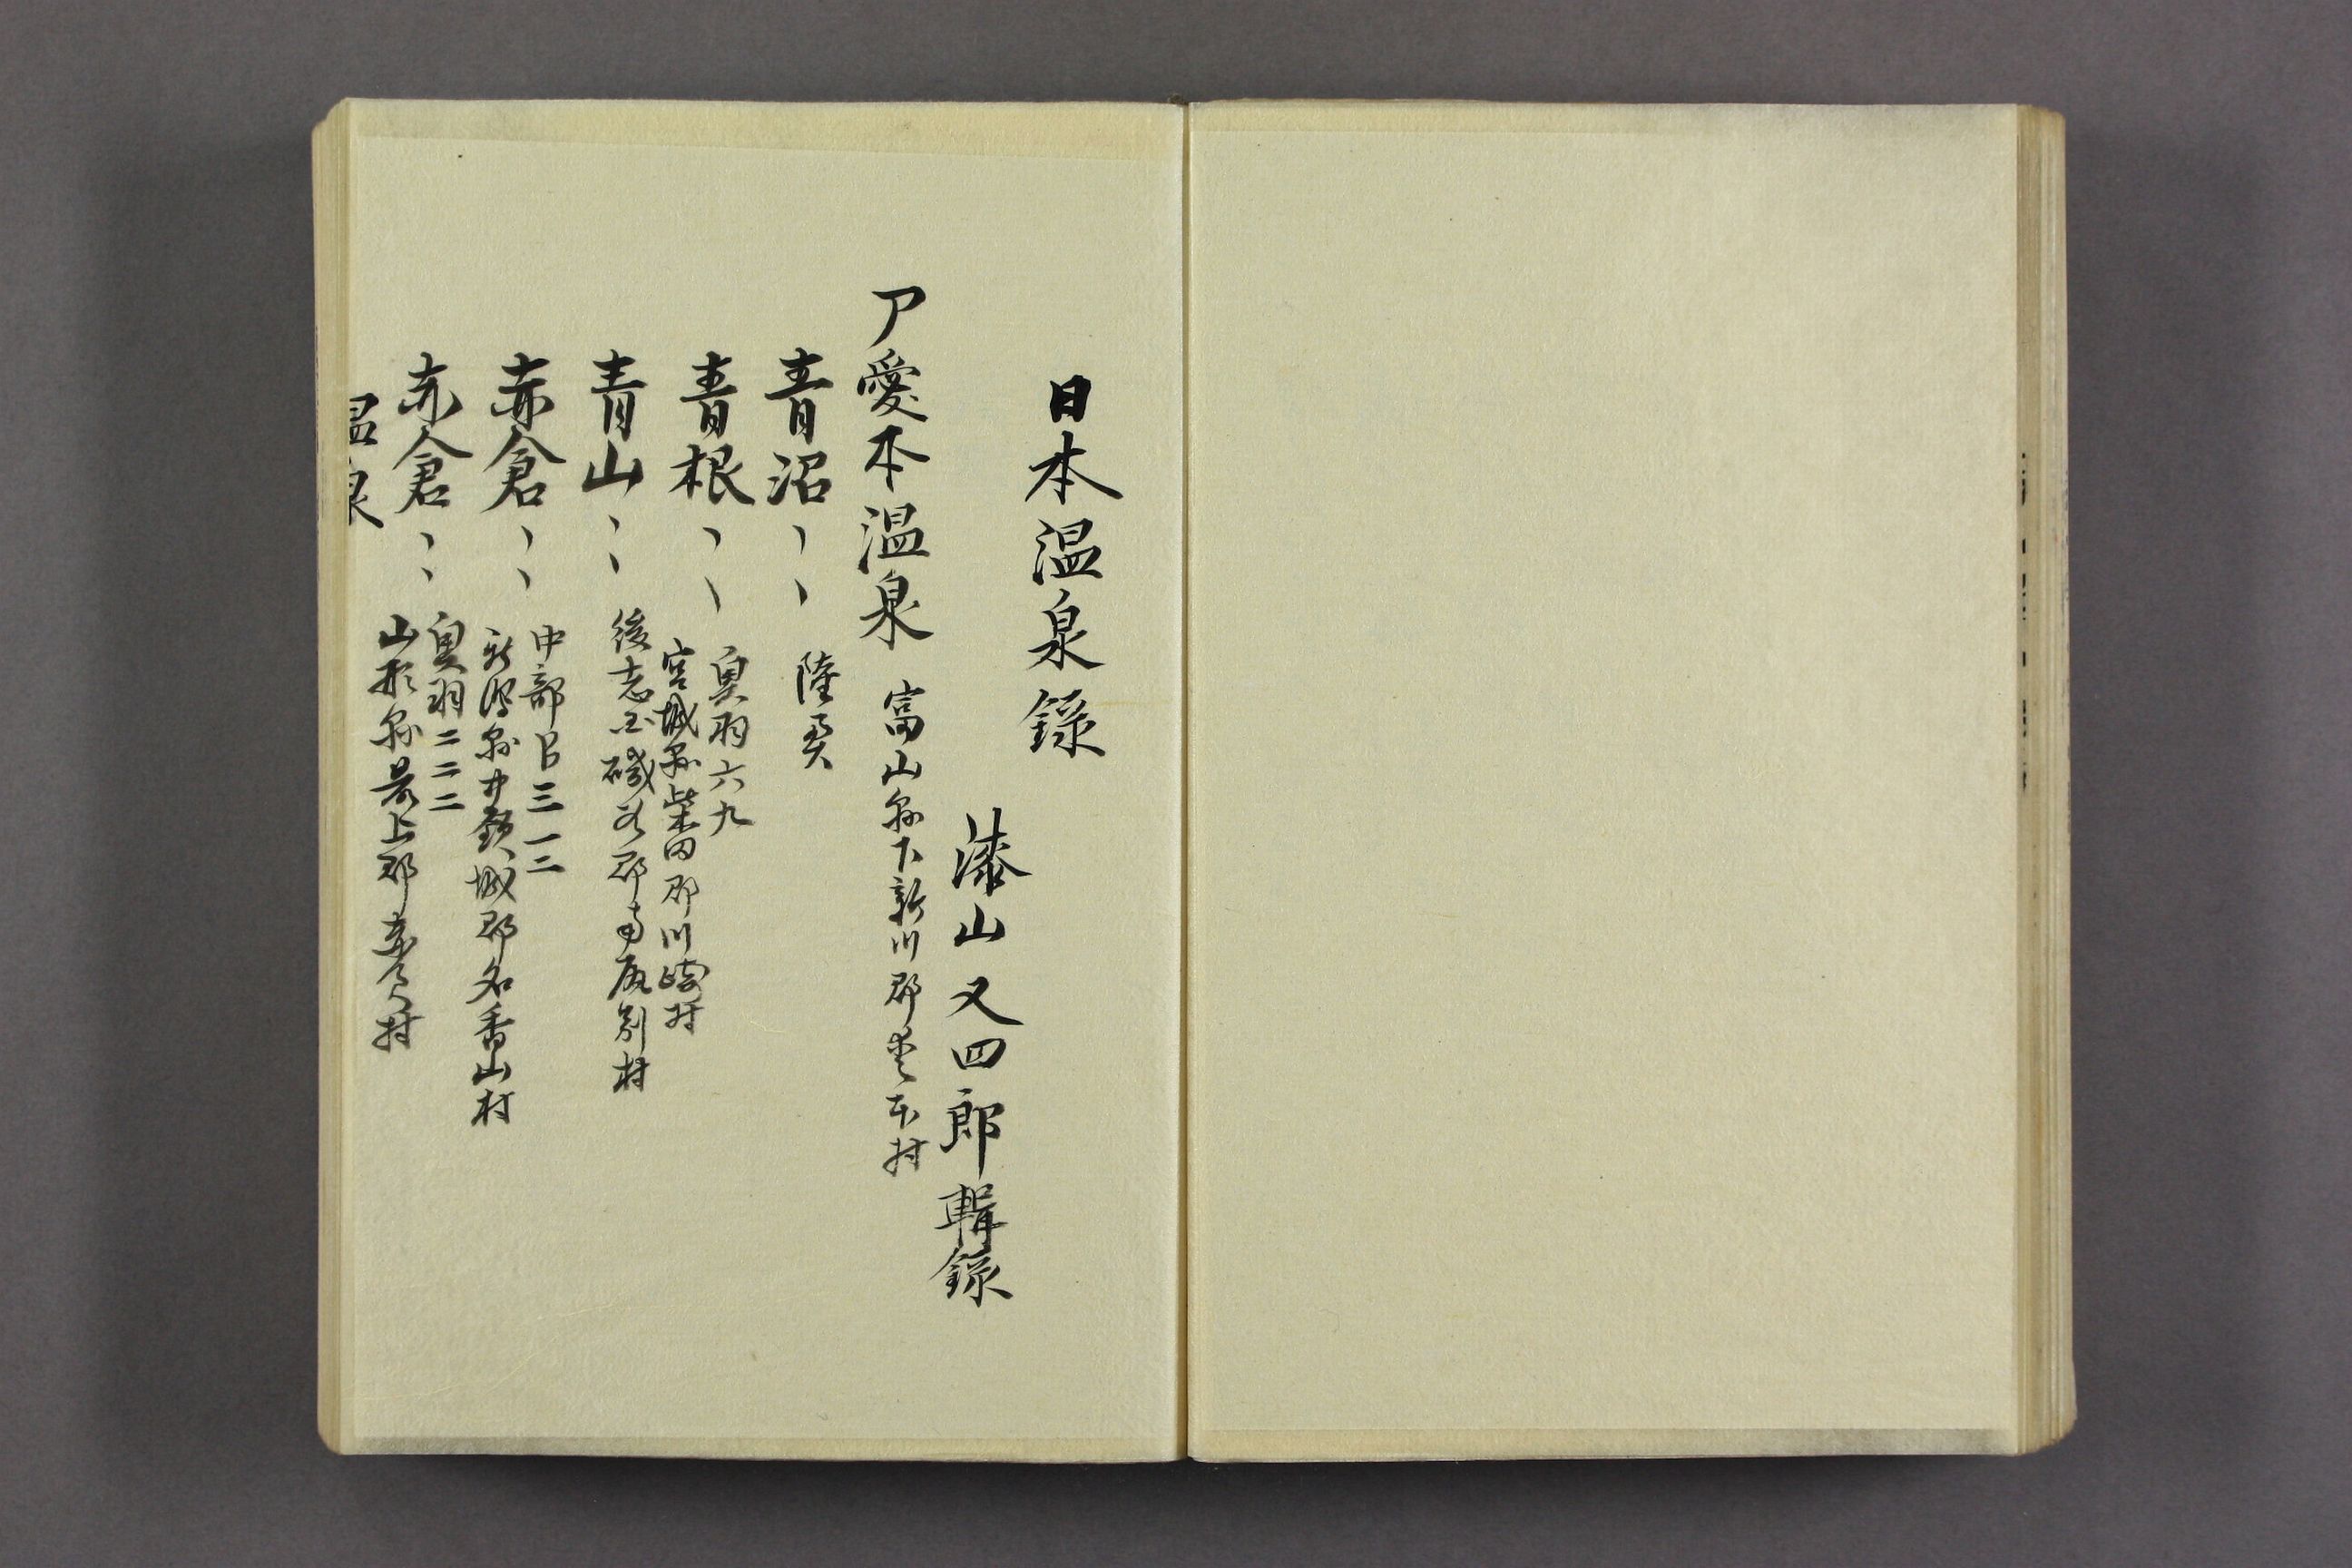 日本温泉録
漆山又四郎輯録
ア愛本温泉 富山縣下新川郡愛本村
青沼〻〻 陸奥
青根〻〻 奥羽六九
宮城縣柴田郡川崎村
青山〻〻 後志国磯谷郡南尻別村
赤倉〻〻 中部日三一二
新潟縣中頸城郡名香山村
赤倉〻〻 奥羽二二二
山形縣最上郡東小国村
温泉